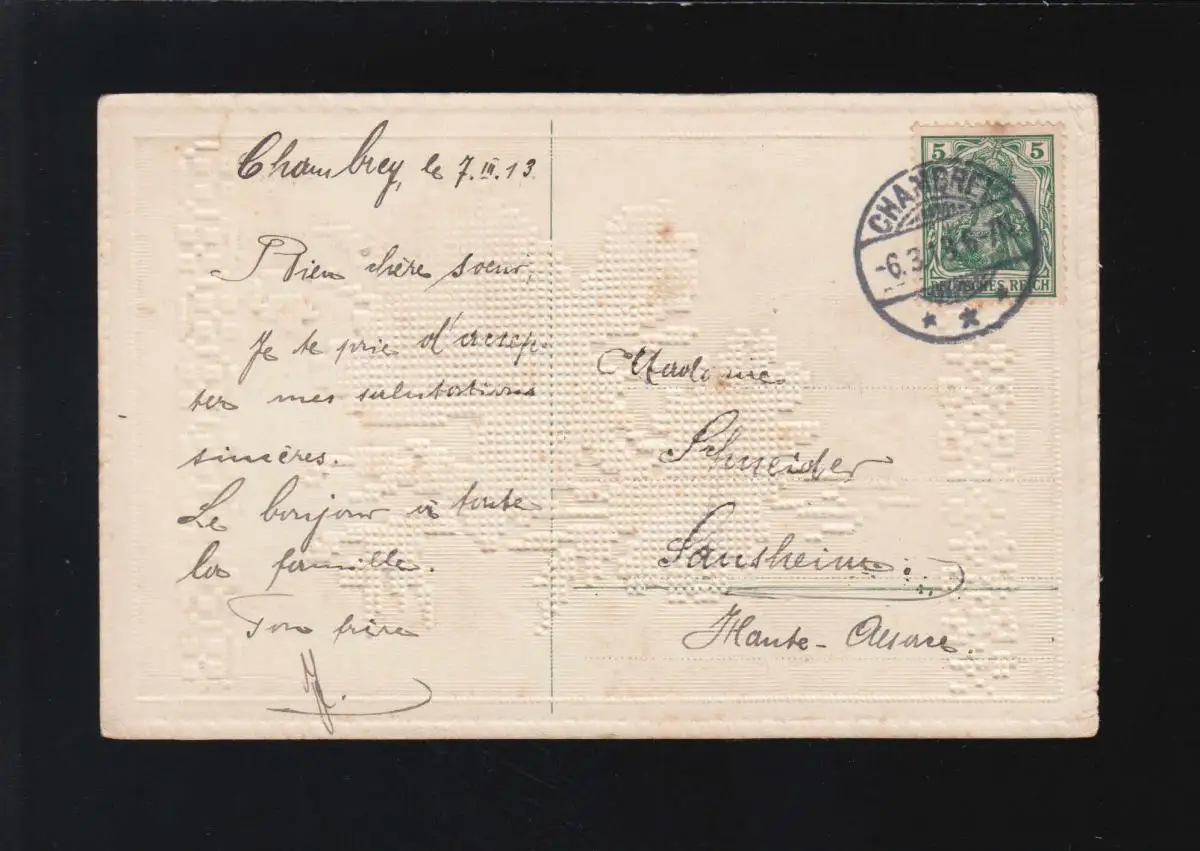 Chambrey, le 7.III.13
Bien chère soeur,
Je te prie d'accep-
ter mes salutations
sincères.
Le bonjour à toute
la famille.
Ton frère
J.
5 5
DEUTSCHES REICH
CHAMBREY
-6.3
Madame
Schneider
Sausheim.
Haute-Alsace.